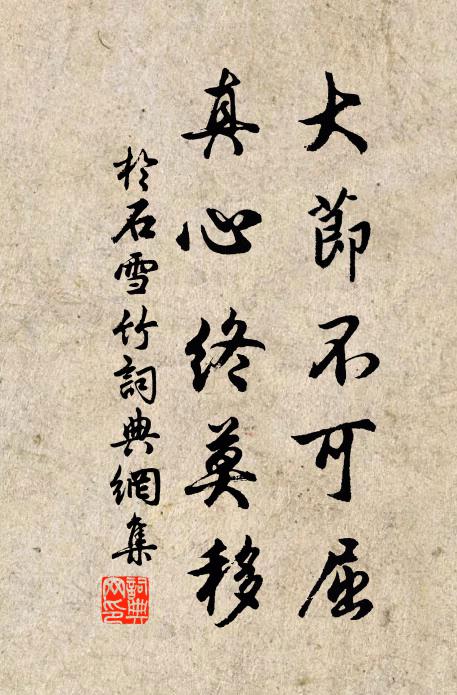 大節不可屈
真心終莫移
於石雪竹詞典網集
詞典
网印